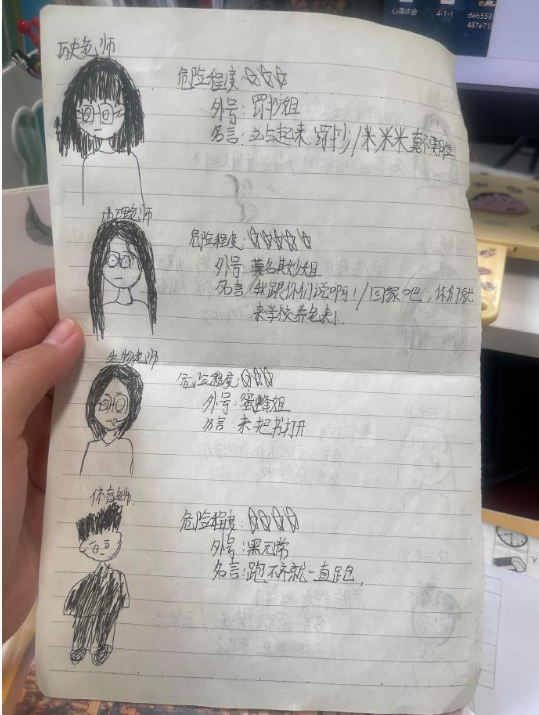 心理体会
4-1-1
deb558
487e71
历史老师
危险程度 ☆☆☆
外号:罚抄姐
名言:站起来 罚抄/米米米
地理老师
危险程度:☆☆☆☆☆
外号:莫名其妙姐
名言:我跟你们说啊!/回家吧,你们就
来学校养老来了
生物老师
危险程度:☆☆☆
外号:蜜蜂姐
名言:来把书打开
体育老师
危险程度:☆☆☆☆
外号:黑无常
名言:跑不齐就一直跑.